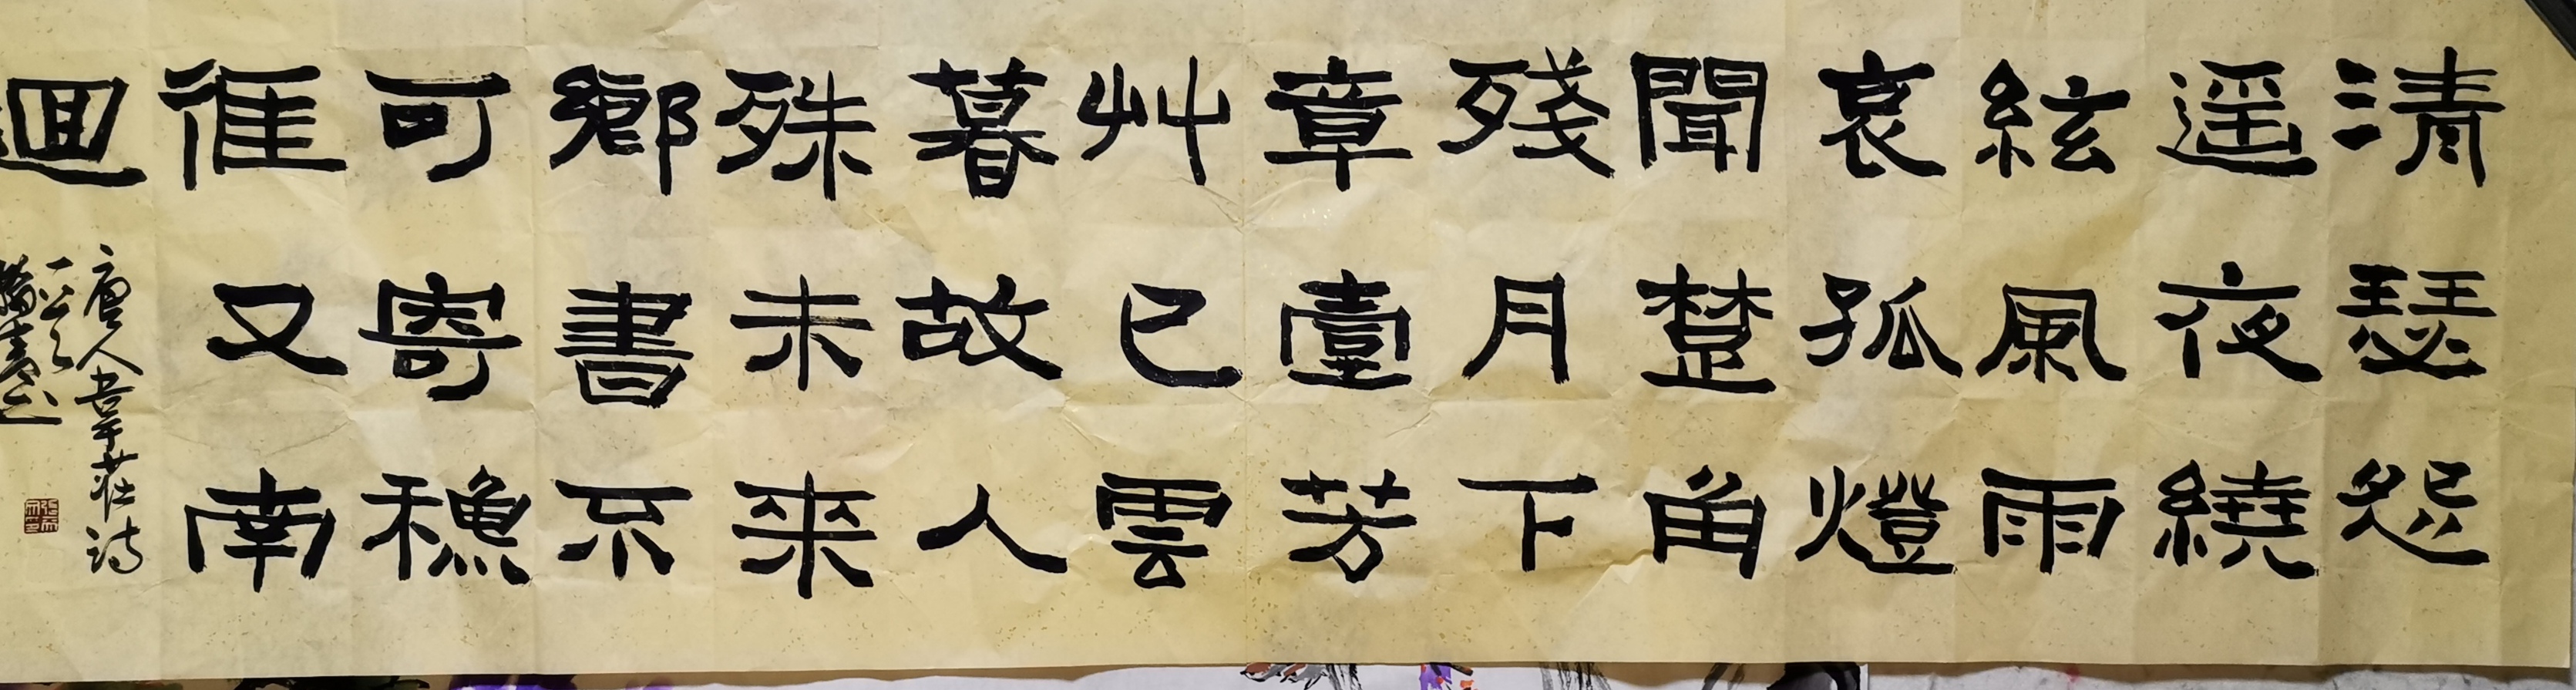 清瑟怨
遥夜繞
絃風雨
哀孤燈
聞楚角
殘月下
章臺芳
艸已雲
暮故人
殊未來
鄉書不
可寄穐
雁又南
迴
唐人韋莊詩